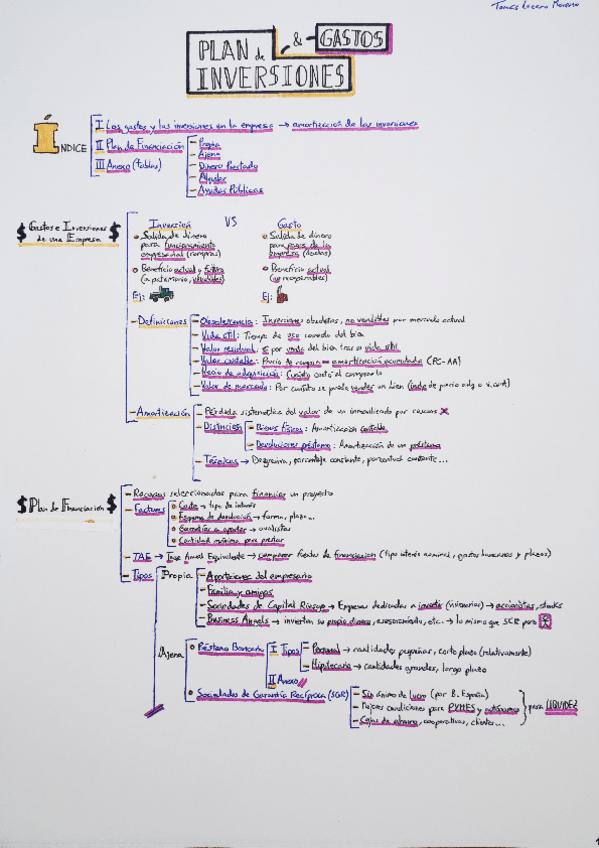 Tomás Lozano Moreno
PLAN de & GASTOS
INVERSIONES
ÍNDICE
I Los gastos y las inversiones en la empresa → amortización de las inversiones
II Plan de Financiación
Propia
Ajena
Dinero Prestado
Ayudas Públicas
III Anexo (tablas)
$ Gastos e Inversiones $
de una Empresa
Inversión VS Gasto
Salida de dinero
para funcionamiento
empresarial (compras)
Beneficio actual y futuro
(a patrimonio,
Ej:
Salida de dinero
para
(deudas)
Beneficio actual
(no recuperables)
Ej:
Definiciones
Obsolescencia: Inversiones obsoletas, no vendibles por mercado actual
Vida útil: Tiempo de uso cómodo del bien
Valor residual: € por venta del bien tras su vida útil
Valor contable: Precio de compra – amortización acumulada (PC-AA)
Precio de adquisición: Cuánto costó al comprarlo
Valor de mercado: Por cuánto se puede vender un bien (indp de precio adq o v.cont)
Amortización
Pérdida sistemática del valor de un inmovilizado por causas X
Distinción
Bienes físicos: Amortización contable
Devoluciones préstamo: Amortización de un préstamo
Técnicas → Degresiva, porcentaje constante, porcentual constante...
$ Plan de Financiación $
Recursos seleccionados para financiar un proyecto
Factores
Coste → tipo de interés
Esquema de devolución → forma, plazo...
Garantías a aportar → avalistas
Cantidad máxima para prestar
TAE → Tasa Anual Equivalente → comparar fuentes de financiación (tipo interés nominal, gastos bancarios y plazos)
Tipos
Propia
Aportaciones del empresario
Familia y amigos
Sociedades de Capital Riesgo → Empresas dedicadas a invertir (inversoras) → accionistas, stocks
Business Angels → invierten su propio dinero, asesoramiento, etc. → lo mismo que SCR pero
Ajena
Préstamo Bancario
I Tipos
Personal → cantidades pequeñas, corto plazo (relativamente)
Hipotecario → cantidades grandes, largo plazo
II Anexo
Sociedades de Garantía Recíproca (SGR)
Sin ánimo de lucro (por B. España)
Mejores condiciones para PYMES y autónomos
Cajas de ahorro, cooperativas, clientes...
para LIQUIDEZ